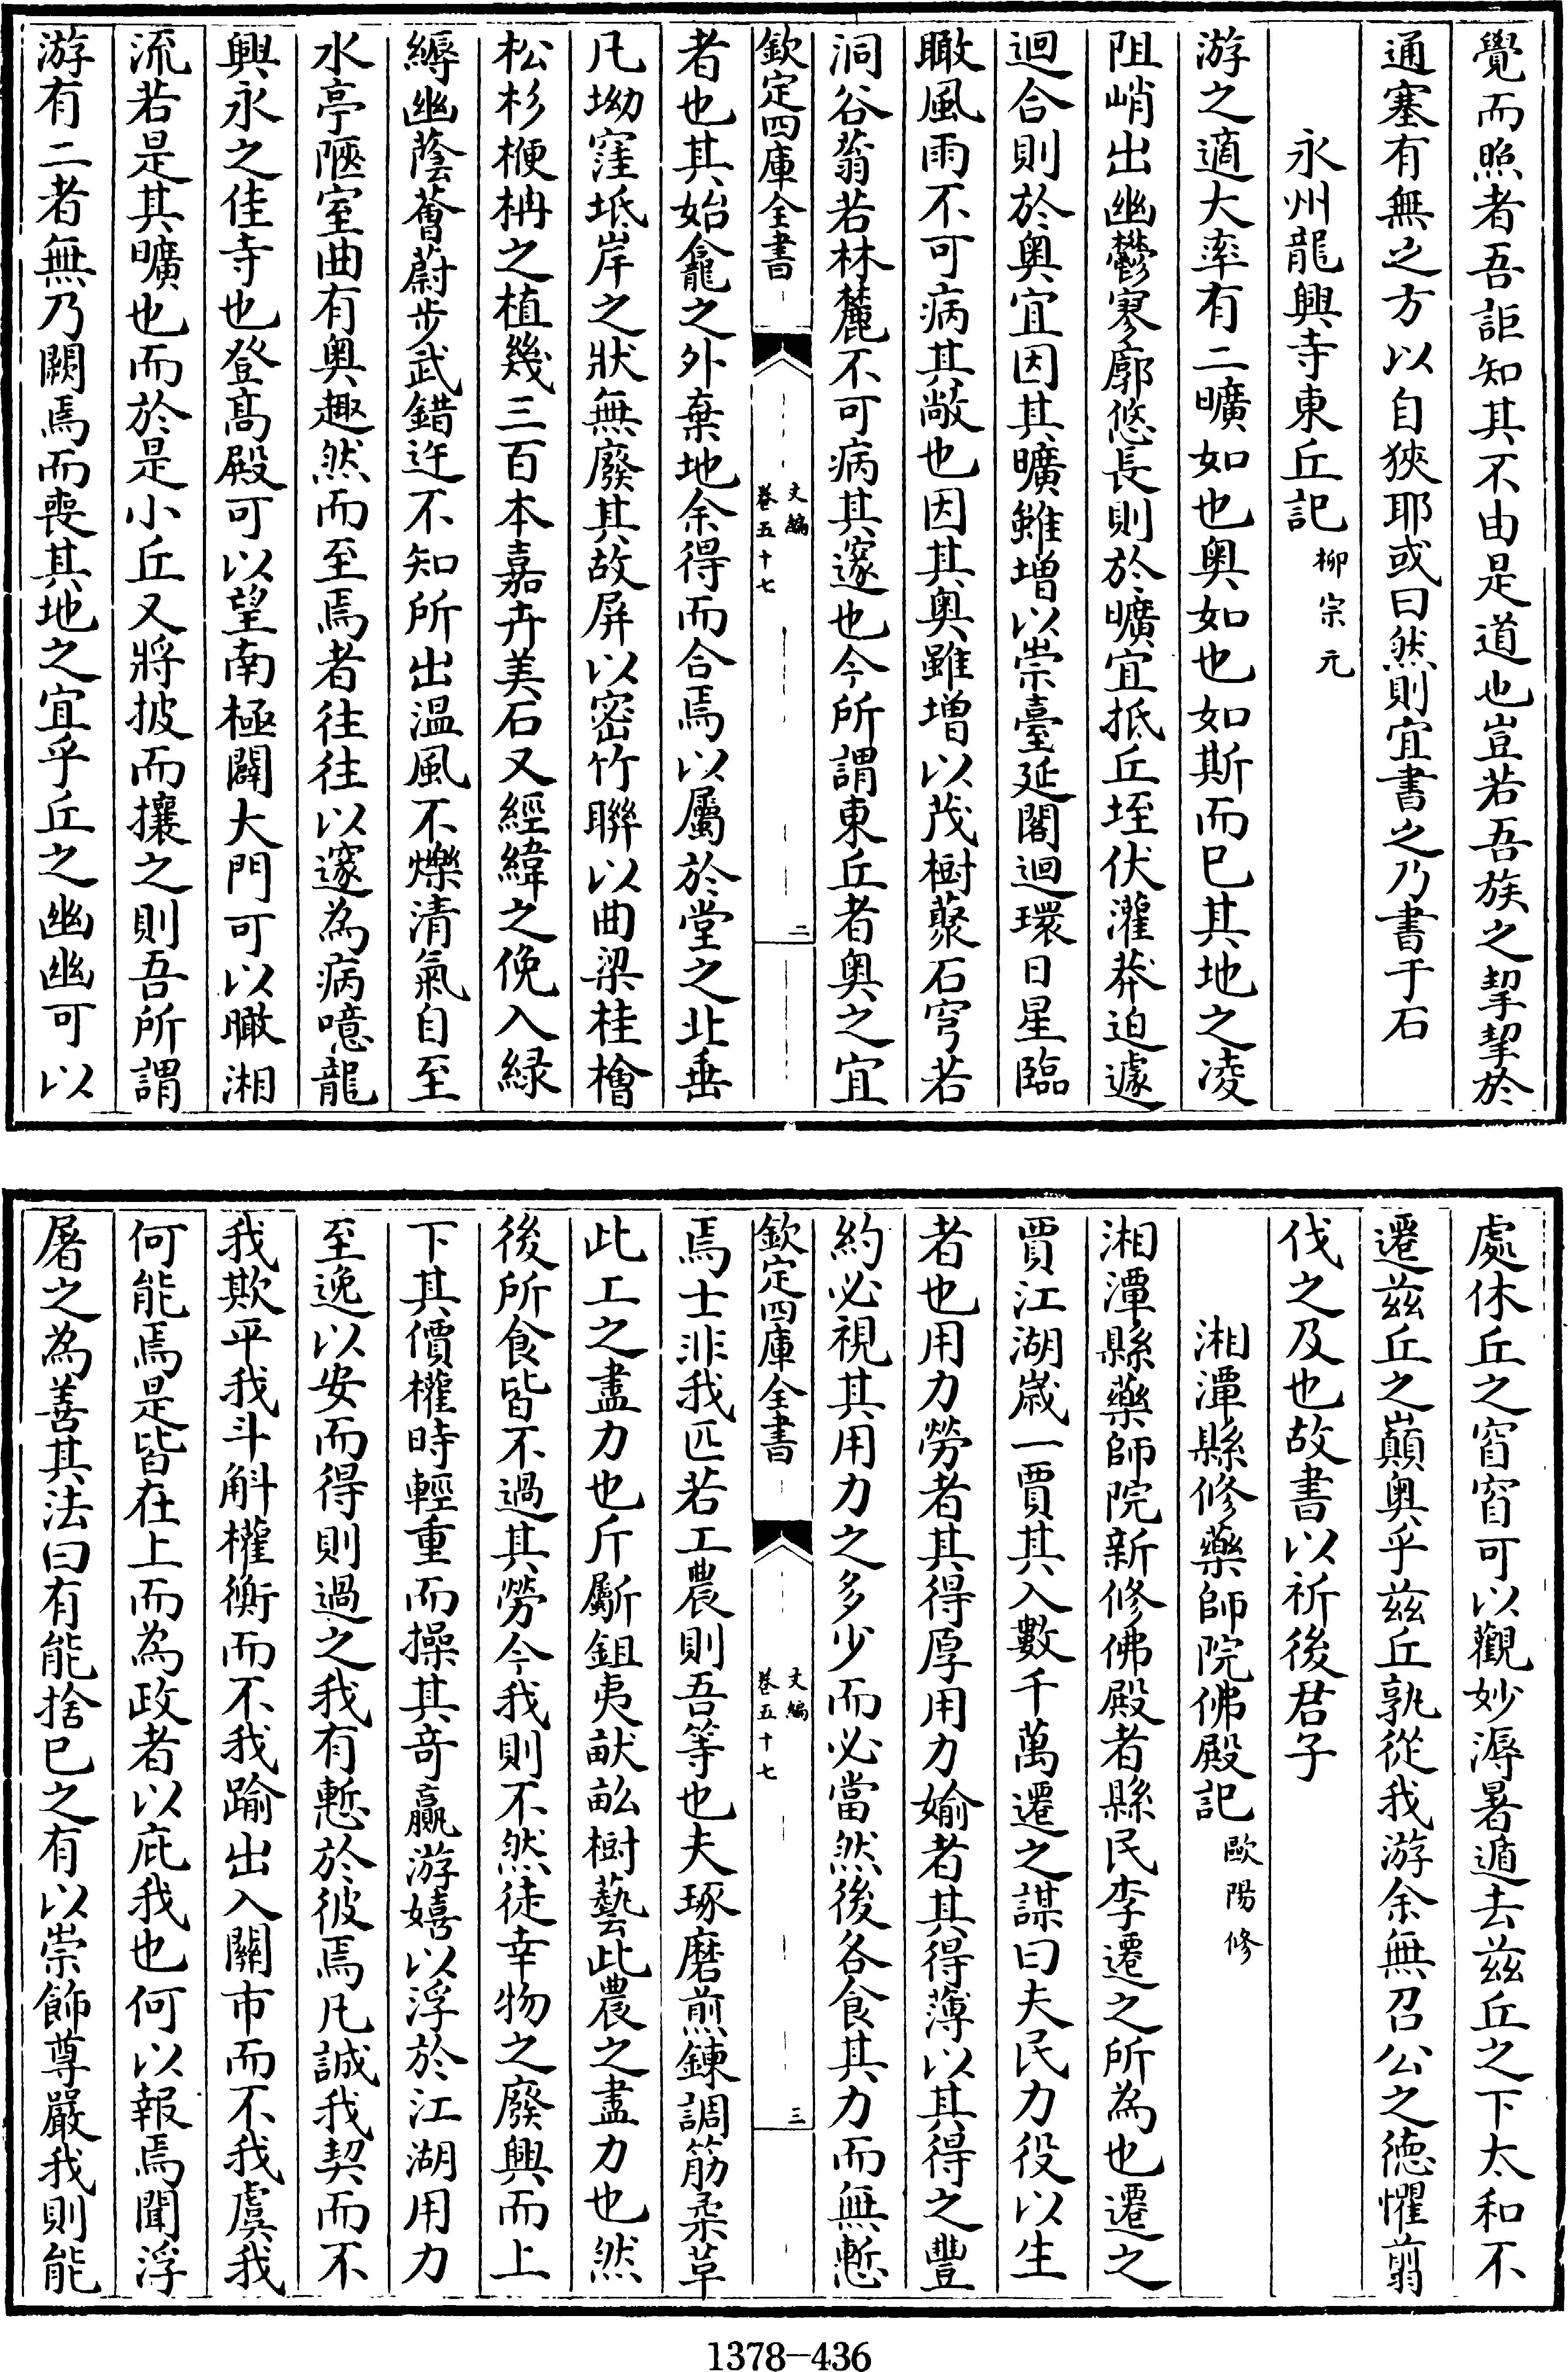 覺而照者吾詎知其不由是道也豈若吾族之挈挈於
通塞有無之方以自狹耶或曰然則宜書之乃書于石
永州龍興寺東丘記柳宗元
游之適大率有二曠如也奥如也如斯而已其地之凌
阻峭出幽鬱寥廓悠長則於曠宜抵丘垤伏灌莽迫遽
迴合則於奥宜因其曠雖增以崇臺延閣迴環日星臨
瞰風雨不可病其敞也因其奥雖增以茂樹蘩石穹若
洞谷蓊若林麓不可病其邃也今所謂東丘者奥之宜
欽定四庫全書
文編
卷五十七
二
者也其始龕之外棄地余得而合焉以屬於堂之北垂
凡坳窪坻岸之狀無廢其故屏以密竹聯以曲梁桂檜
松杉楩柟之植幾三百本嘉卉美石又經緯之俛入緑
縟幽蔭薈蔚步武錯迕不知所出温風不爍清氣自至
水亭陿室曲有奥趣然而至焉者往往以邃為病噫龍
興永之佳寺也登髙殿可以望南極闢大門可以瞰湘
流若是其曠也而於是小丘又將披而攘之則吾所謂
游有二者無乃闕焉而喪其地之宜乎丘之幽幽可以
處休丘之窅窅可以觀妙溽暑遁去兹丘之下太和不
遷兹丘之巔奥乎兹丘孰從我游余無召公之徳懼翦
伐之及也故書以祈後君子
湘潭縣修藥師院佛殿記歐陽修
湘潭縣藥師院新修佛殿者縣民李遷之所為也遷之
賈江湖嵗一賈其入數千萬遷之謀曰夫民力役以生
者也用力勞者其得厚用力媮者其得薄以其得之豐
約必視其用力之多少而必當然後各食其力而無慙
欽定四庫全書
文編
卷五十七
三
焉士非我匹若工農則吾等也夫琢磨煎鍊調筋柔革
此工之盡力也斤斸鉏夷畎畝樹藝此農之盡力也然
後所食皆不過其勞今我則不然徒幸物之廢興而上
下其價權時輕重而操其竒贏游嬉以浮於江湖用力
至逸以安而得則過之我有慙於彼焉凡誠我契而不
我欺平我斗斛權衡而不我踰出入關市而不我虞我
何能焉是皆在上而為政者以庇我也何以報焉聞浮
屠之為善其法曰有能捨已之有以崇飾尊嚴我則能
1378—436